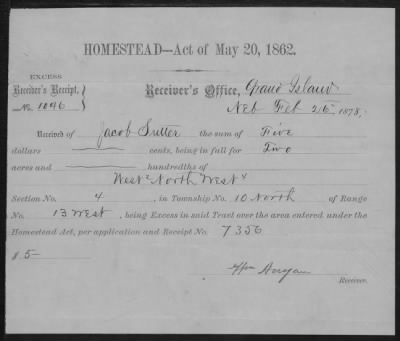 HOMESTEAD—Act of May 20, 1862.
EXCESS
Receiver's Receipt, No. 1046
Receiver's Office, Grand Island
Neb Feb 26th 1878,
Received of Jacob Sutter the sum of Five
dollars cents, being in full for Two
acres and hundredths of
West 2 North West 4
Section No. 4, in Township No. 10 North of Range
No. 13 West, being Excess in said Tract over the area entered under the
Homestead Act, per application and Receipt No. 7356
$ 5-
Wm Anyan
Receiver.